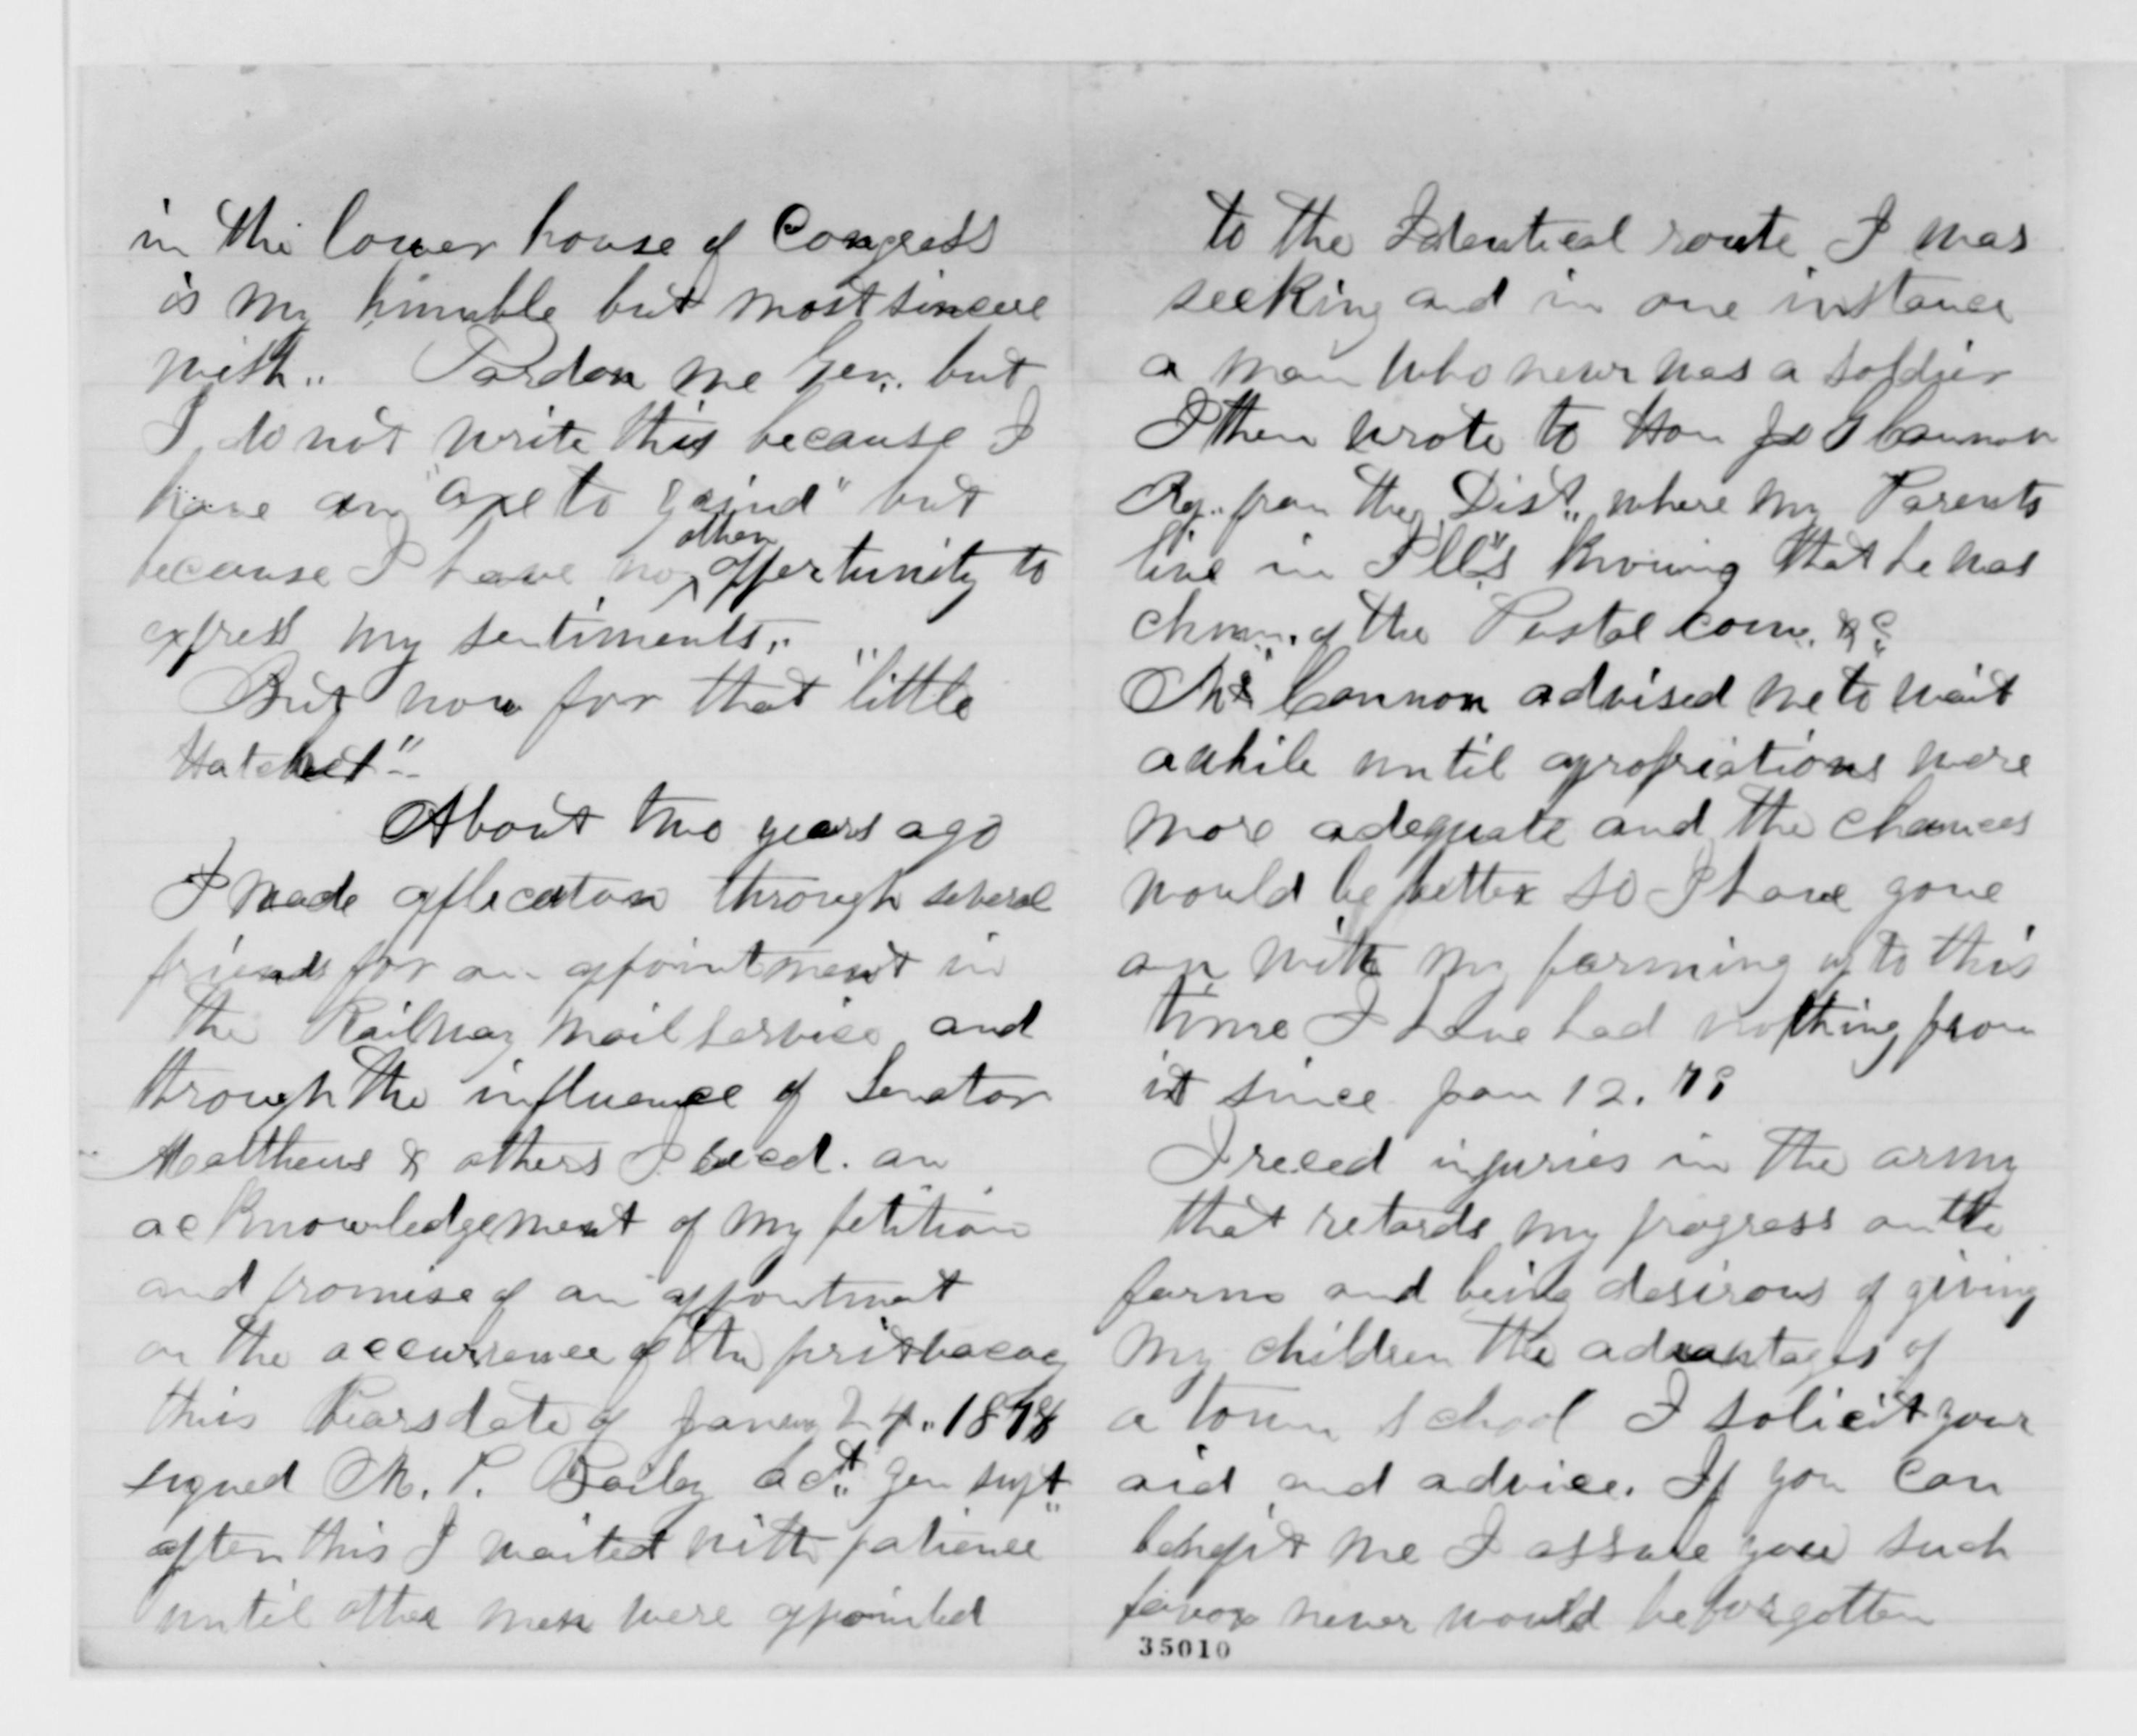 in the lower house of Congress
is my humble but most sincere
wish.. Pardon me Gen.. but
I do not write this because I
have an "axe to grind" but
other
because I have no ^ opportunity to
express my sentiments..
But now for that "little
Hatchet"..
About two years ago
I made application through several
friends for an appointment in
the Railway mail service and
through the influence of Senator
Matthews & others I recd. an
acknowledgement of my petition
and promise of an appointment
on the occurrence of the first vacancy
this bears date of January 24.. 1878
signed M. P. Bailey act.. gen supt..
after this I waited with patience
until other men were appointed
to the Identical route I was
seeking and in one instance
a man who never was a soldier
I then wrote to Hon Jo G Cannon
Rep.. from the Dist.. where my Parents
live in Ill's knowing that he was
chmn. of the Postal com. &c
Mr Cannon advised me to wait
awhile until apropriations were
more adequate and the chances
would be better so I have gone
on with my farming up to this
time I have had nothing from
it since Jan 12. 78
I reced injuries in the army
that retards my progress on the
farm and being desirous of giving
my children the advantages of
a town school I solicit your
aid and advice. If you can
benefit me I assure you such
favor never would be forgotten
35010